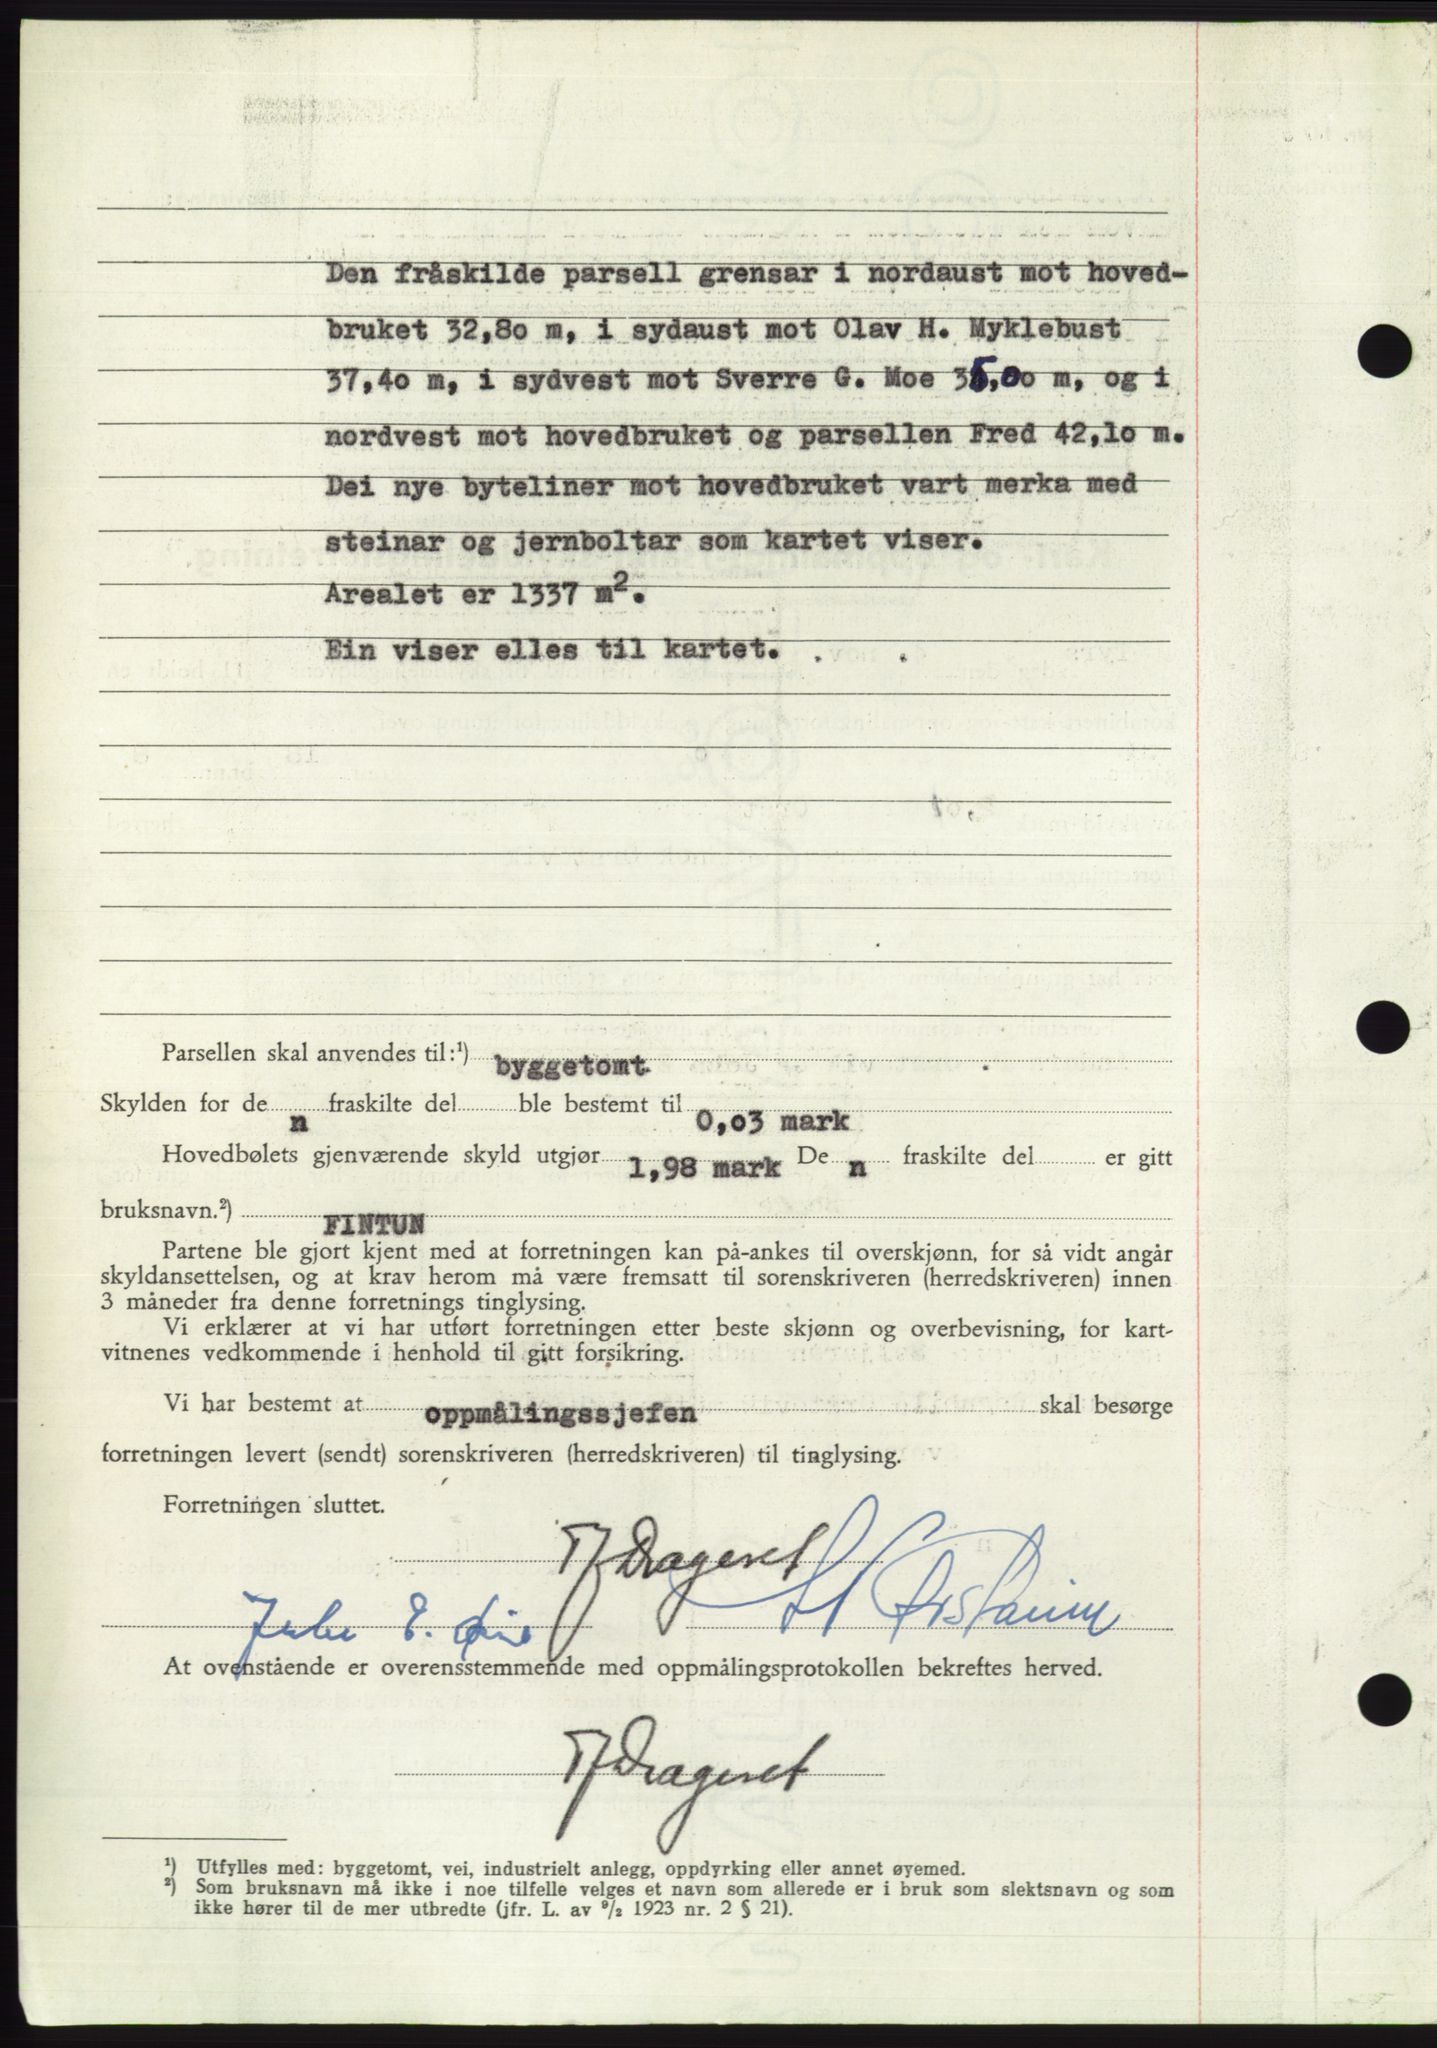 Den fråskilde parsell grensar i nordaust mot hoved-
bruket 32,80 m, i sydaust mot Olav H. Myklebust
37,40 m, i sydvest mot Sverre G. Moe 35,00 m, og i
nordvest mot hovedbruket og parsellen Fred 42,10 m.
Dei nye byteliner mot hovedbruket vart merka med
steinar og jernboltar som kartet viser.
Arealet er 1337 m².
Ein viser elles til kartet.
Parsellen skal anvendes til:¹) byggetomt
Skylden for de n fraskilte del ble bestemt til 0,03 mark
Hovedbølets gjenværende skyld utgjør 1,98 mark De n fraskilte del er gitt
bruksnavn.²) FINTUN
Partene ble gjort kjent med at forretningen kan på-ankes til overskjønn, for så vidt angår
skyldansettelsen, og at krav herom må være fremsatt til sorenskriveren (herredskriveren) innen
3 måneder fra denne forretnings tinglysing.
Vi erklærer at vi har utført forretningen etter beste skjønn og overbevisning, for kart-
vitnenes vedkommende i henhold til gitt forsikring.
Vi har bestemt at oppmålingssjefen skal besørge
forretningen levert (sendt) sorenskriveren (herredskriveren) til tinglysing.
Forretningen sluttet.
Drageset
E.
At ovenstående er overensstemmende med oppmålingsprotokollen bekreftes herved.
Drageset
¹) Utfylles med: byggetomt, vei, industrielt anlegg, oppdyrking eller annet øyemed.
²) Som bruksnavn må ikke i noe tilfelle velges et navn som allerede er i bruk som slektsnavn og som
ikke hører til de mer utbredte (jfr. L. av ⁹/₂ 1923 nr. 2 § 21).